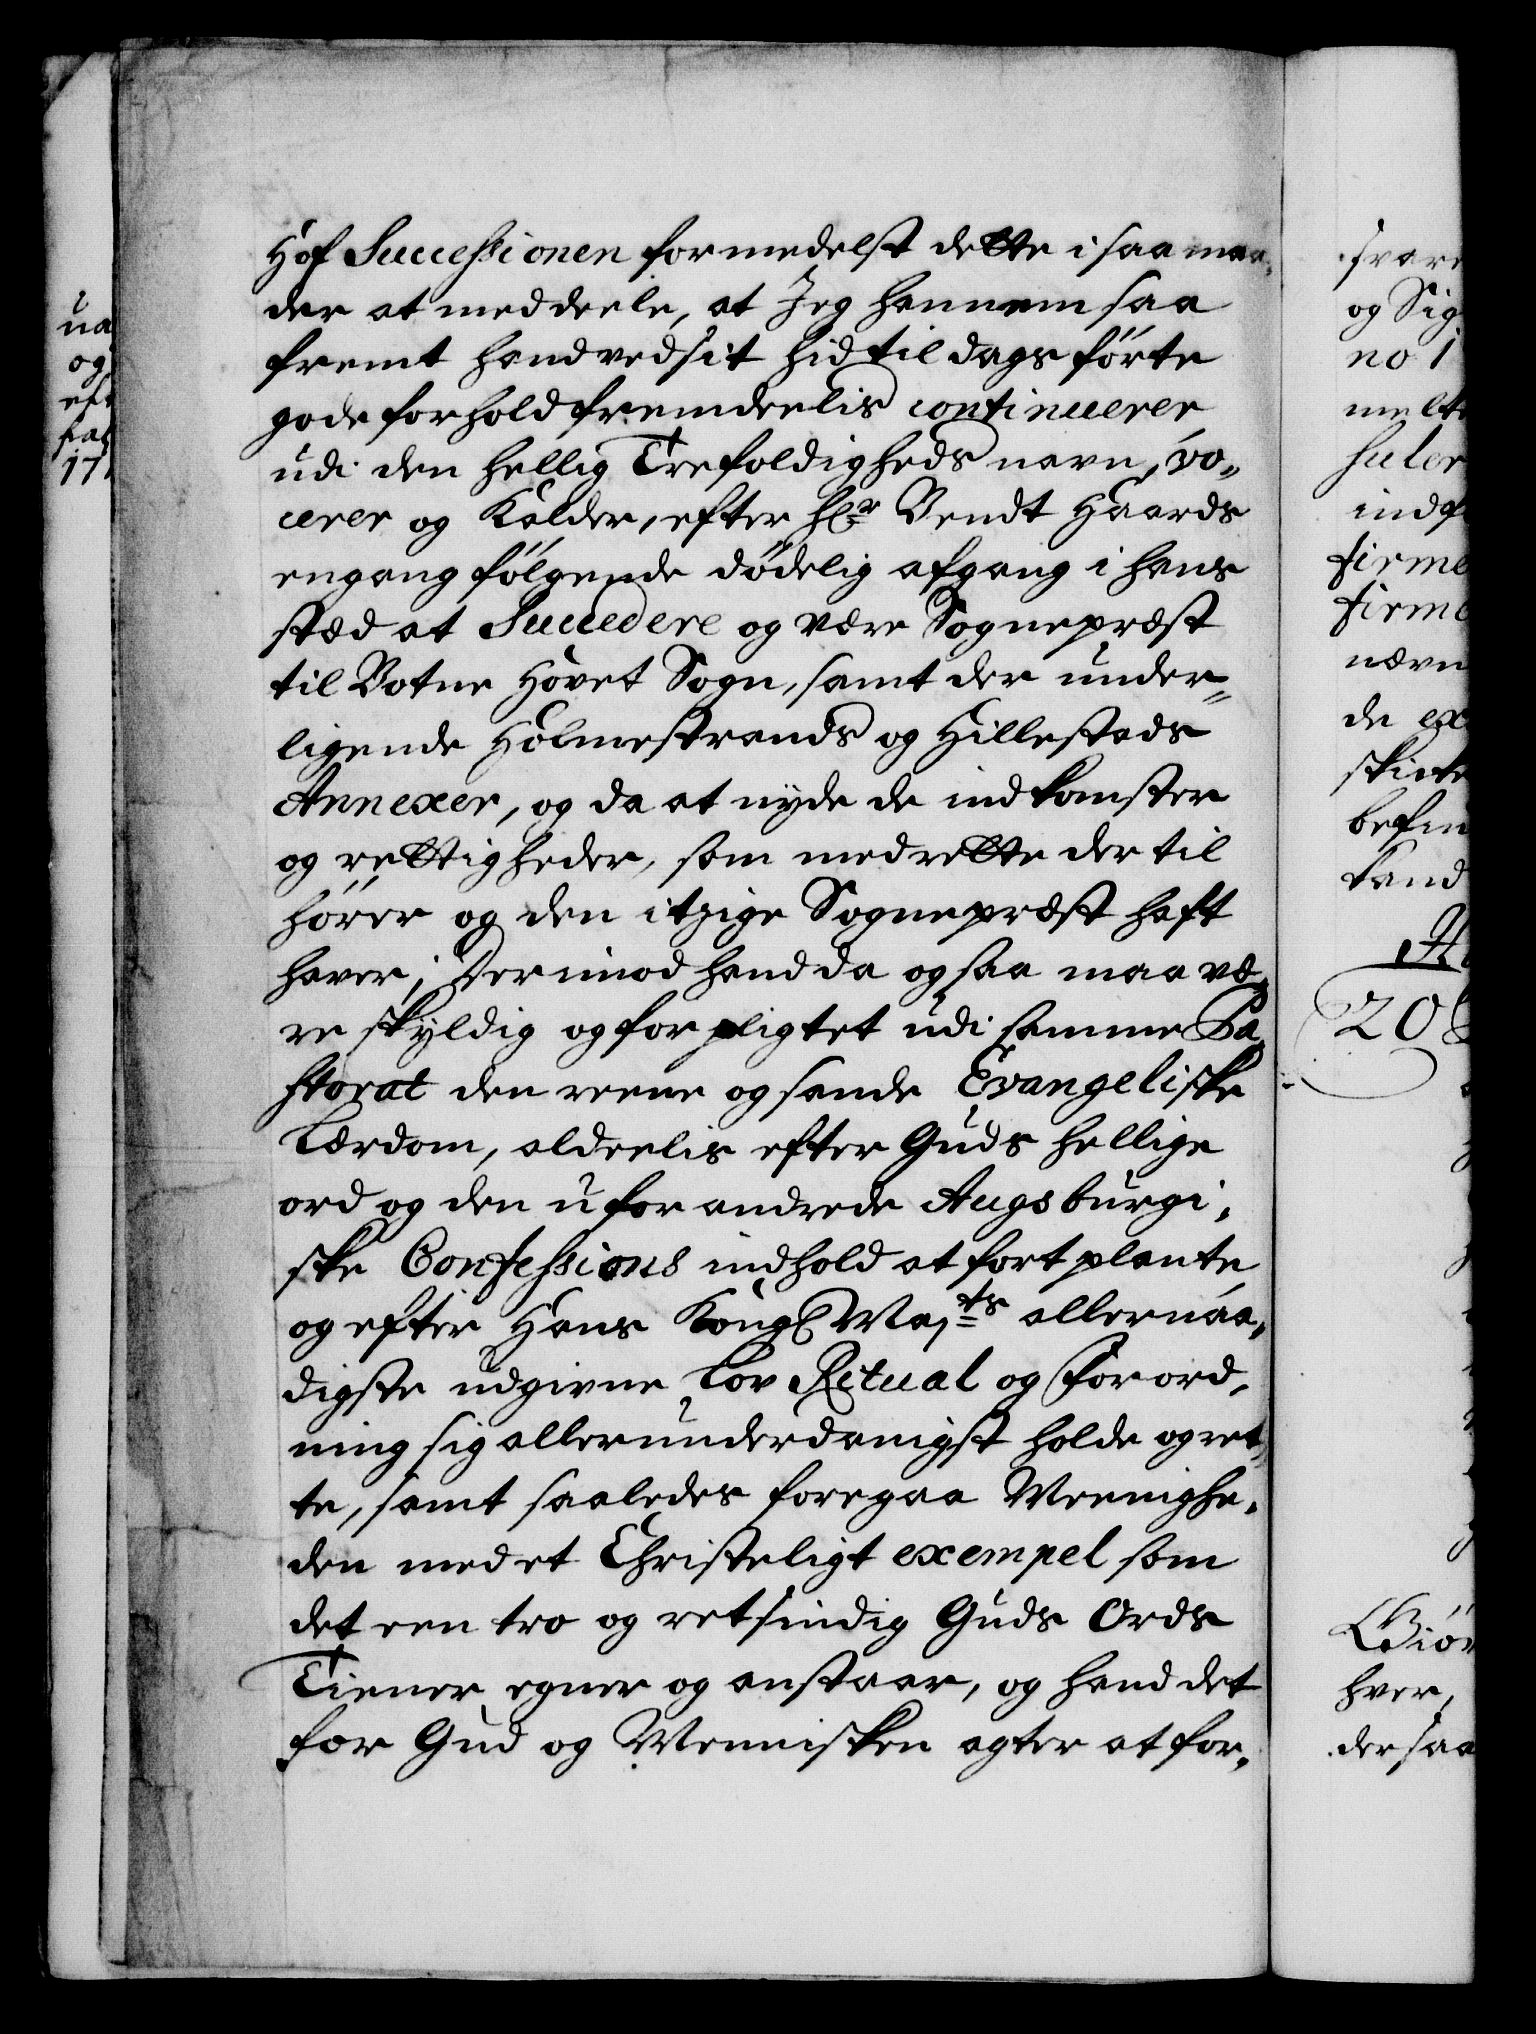 Hof Successionen formedelst dette i saa maa„
der at meddeele, at Jeg hannem saa
fremt hand ved sit hid til dags förte
gode forhold fremdeelis continuerer
udi den hellig Trefoldigheds navn, vo„
cerer og Kalder, efter Hr Bendt Haards
engang fölgende dödelig afgang i hans
stæd at Succedere og være Sognepræst
til Botne Hovet Sogn, samt der under„
ligende Holmestrands og Hillestads
Annexer, og da at nyde de indkomster
og rettigheder, som med rette der til
hörer og den itzige Sognepræst haft
haver; Derimod hand da og saa maa væ„
re skyldig og forpligtet udi samme Pa„
storat den reene og sande Evangeliske
Lærdom, aldeelis efter Guds hellige
ord og den uforandrede Augsburgi„
ske Confessions indhold at fortplante
og efter Hans Kongl Majts allernaa„
digste udgivne Lov Ritual og Forord„
ning sig allerunderdanigst holde og ret„
te, samt saaledes foregaa Meenighe„
den med et Christeligt exempel som
det een tro og retsindig Guds Ords
Tiener egner og anstaar, og hand det
for Gud og Mennisken agter at for„